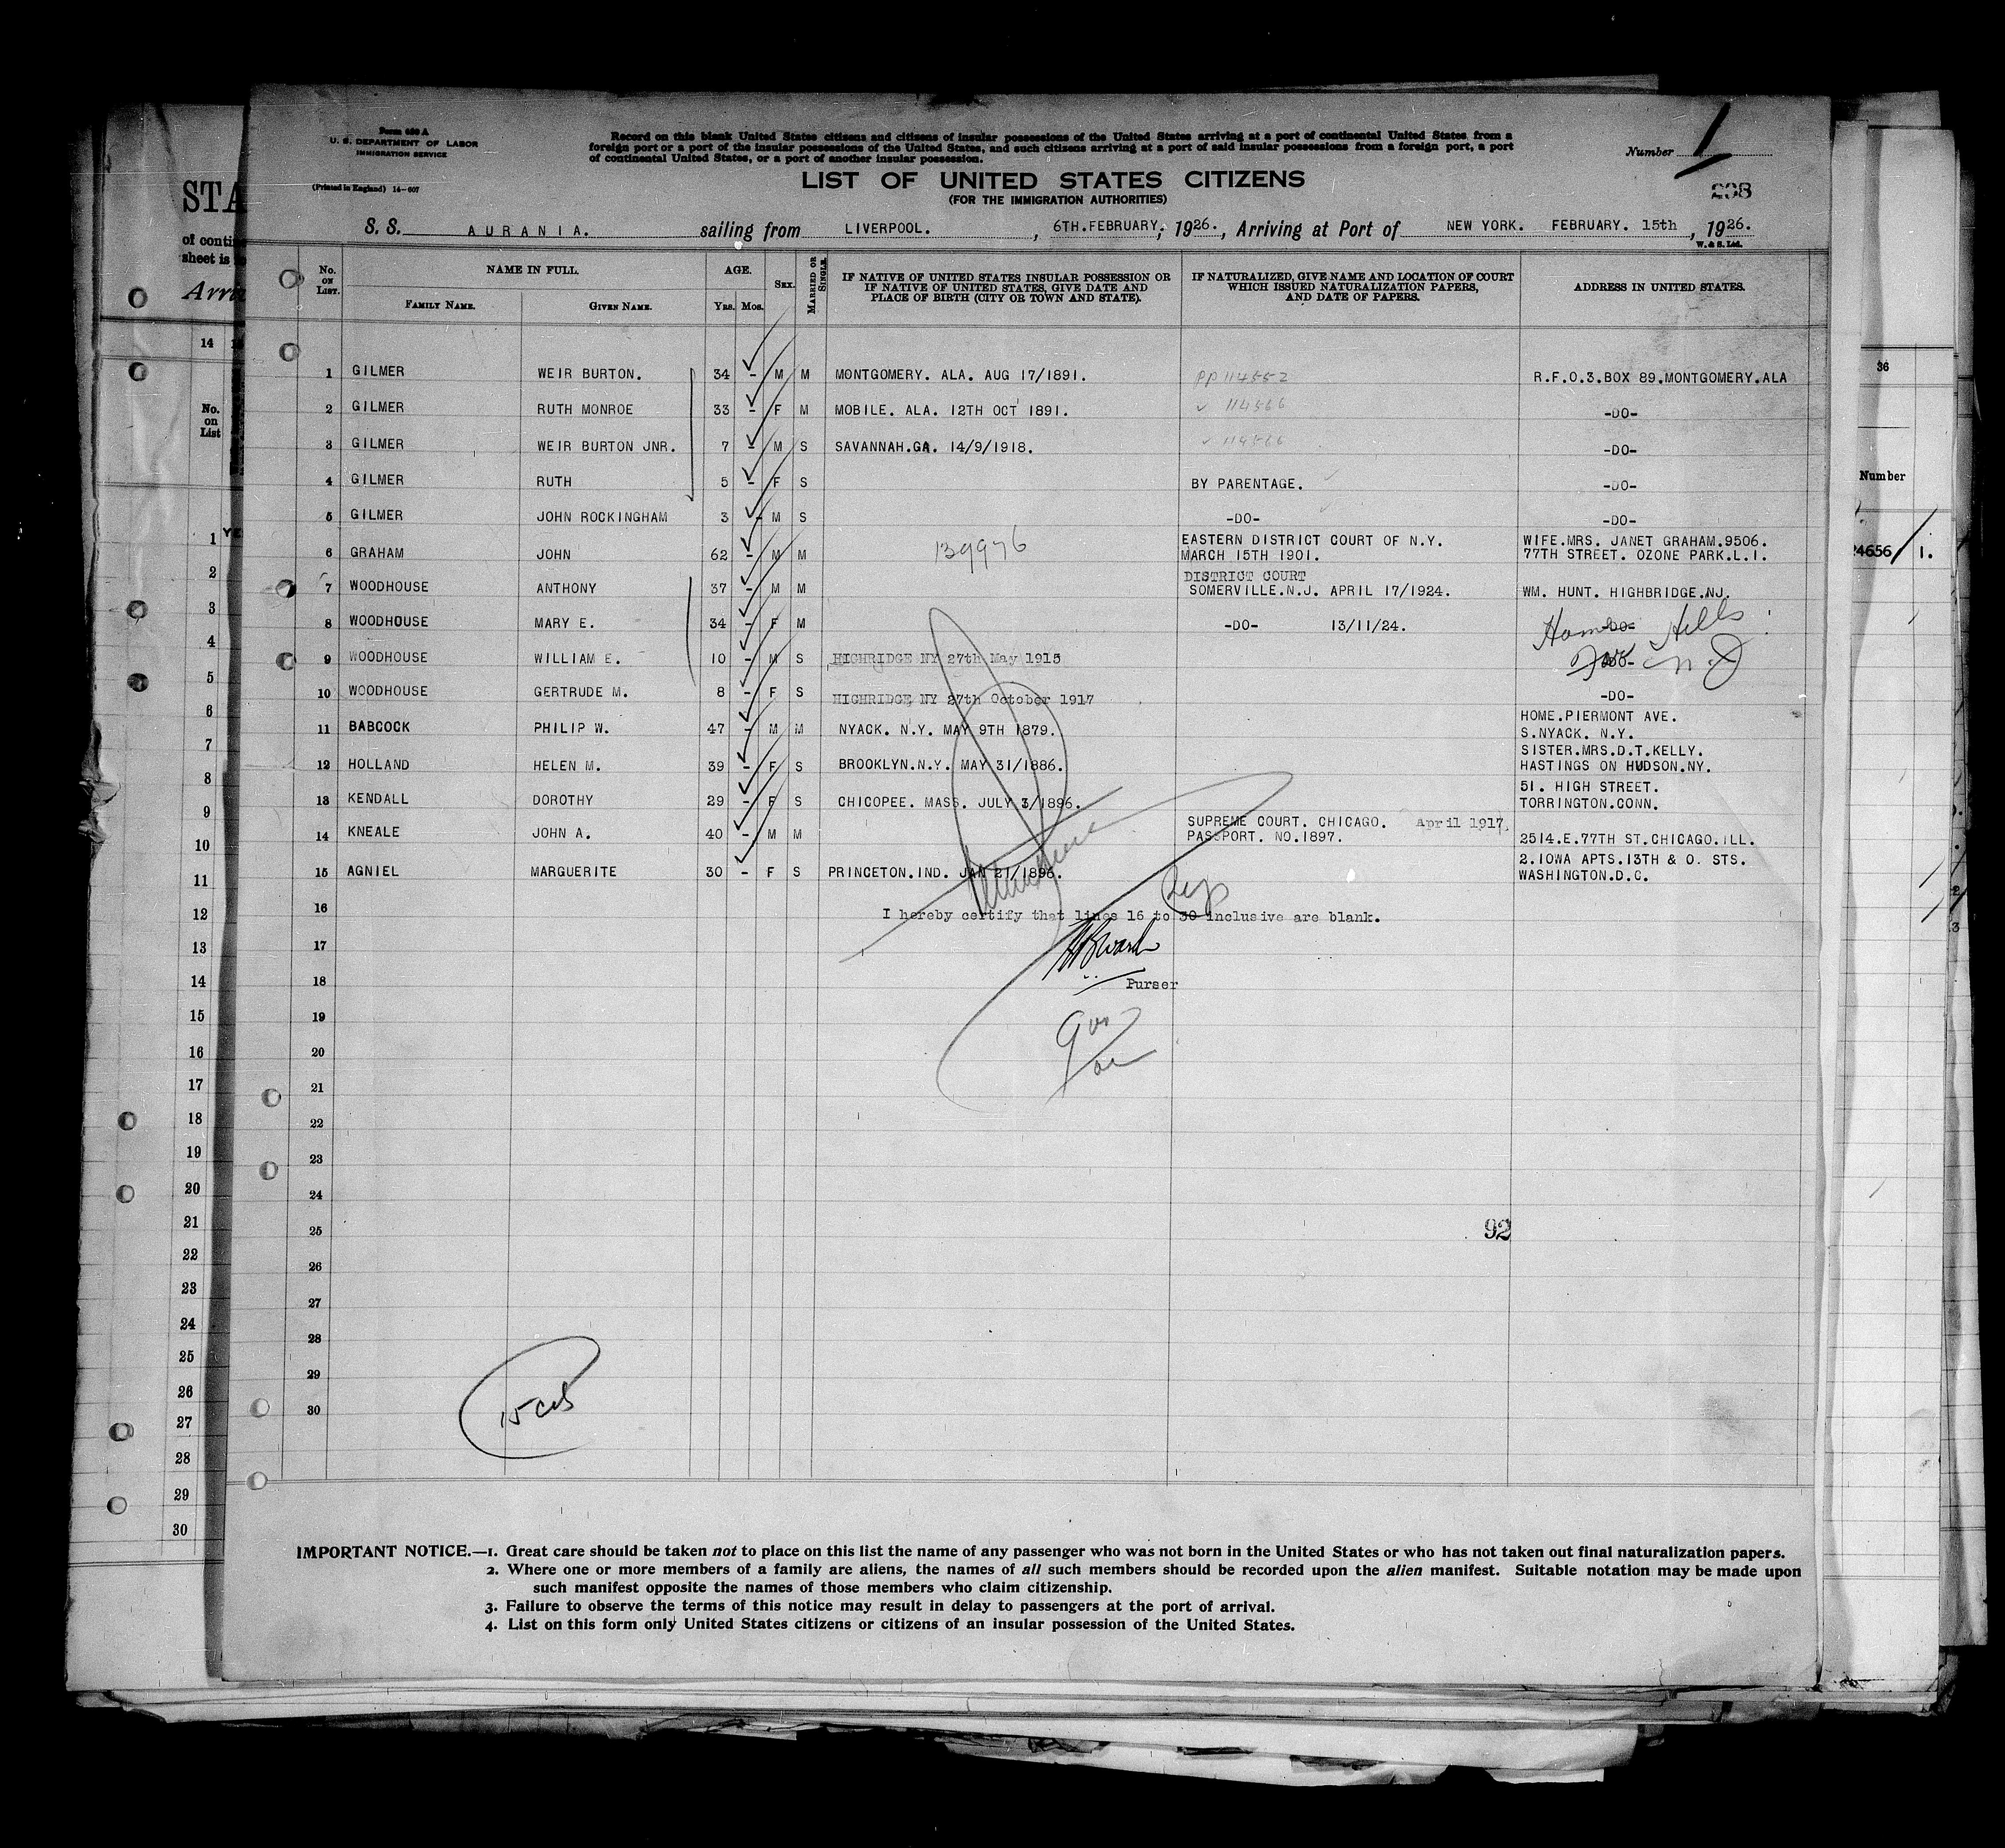 Form 630 A
U. S. DEPARTMENT OF LABOR
IMMIGRATION SERVICE
(Printed in England) 14—607
Record on this blank United States citizens and citizens of insular possessions of the United States arriving at a port of continental United States from a
foreign port or a port of the insular possessions of the United States, and such citizens arriving at a port of said insular possessions from a foreign port, a port
of continental United States, or a port of another insular possession.
Number 1
LIST OF UNITED STATES CITIZENS
(FOR THE IMMIGRATION AUTHORITIES)
238
S. S. AURANIA. sailing from LIVERPOOL. , 6TH.FEBRUARY, 1926. , Arriving at Port of NEW YORK. FEBRUARY. 15th , 1926.
W. & S. Ltd.
No. ON LIST. NAME IN FULL. AGE. SEX. MARRIED OR SINGLE. IF NATIVE OF UNITED STATES INSULAR POSSESSION OR IF NATIVE OF UNITED STATES, GIVE DATE AND PLACE OF BIRTH (CITY OR TOWN AND STATE). IF NATURALIZED, GIVE NAME AND LOCATION OF COURT WHICH ISSUED NATURALIZATION PAPERS, AND DATE OF PAPERS. ADDRESS IN UNITED STATES.
FAMILY NAME. GIVEN NAME. YRS. MOS.
1 GILMER WEIR BURTON. 34 - M M MONTGOMERY. ALA. AUG 17/1891. PP 114552 R.F.O.3.BOX 89.MONTGOMERY.ALA
2 GILMER RUTH MONROE 33 - F M MOBILE. ALA. 12TH OCT 1891. 114566 -DO-
3 GILMER WEIR BURTON JNR. 7 - M S SAVANNAH.GA. 14/9/1918. 114566 -DO-
4 GILMER RUTH 5 - F S BY PARENTAGE. -DO-
5 GILMER JOHN ROCKINGHAM 3 - M S -DO- -DO-
6 GRAHAM JOHN 62 - M M 139976 EASTERN DISTRICT COURT OF N.Y. MARCH 15TH 1901. WIFE.MRS. JANET GRAHAM.9506. 77TH STREET. OZONE PARK.L.I.
7 WOODHOUSE ANTHONY 37 - M M DISTRICT COURT SOMERVILLE.N.J. APRIL 17/1924. WM. HUNT. HIGHBRIDGE.NJ.
8 WOODHOUSE MARY E. 34 - F M -DO- 13/11/24. -DO- Hills
9 WOODHOUSE WILLIAM E. 10 - M S HIGHRIDGE NY 27th May 1915 -DO- N.J
10 WOODHOUSE GERTRUDE M. 8 - F S HIGHRIDGE NY 27th October 1917 -DO-
11 BABCOCK PHILIP W. 47 - M M NYACK. N.Y. MAY 9TH 1879. HOME.PIERMONT AVE. S.NYACK. N.Y.
12 HOLLAND HELEN M. 39 - F S BROOKLYN.N.Y. MAY 31/1886. SISTER.MRS.D.T.KELLY. HASTINGS ON HUDSON.NY.
13 KENDALL DOROTHY 29 - F S CHICOPEE. MASS. JULY 3/1896. 51. HIGH STREET. TORRINGTON.CONN.
14 KNEALE JOHN A. 40 - M M SUPREME COURT. CHICAGO. April 1917. PASSPORT. NO.1897. 2514.E.77TH ST.CHICAGO.ILL.
15 AGNIEL MARGUERITE 30 - F S PRINCETON.IND. JAN 21/1896. 2.IOWA APTS.13TH & O. STS. WASHINGTON.D.C.
16 I hereby certify that lines 16 to 30 inclusive are blank.
17
18 Purser
19
20
21
22
23
24
25 92
26
27
28
29
30
IMPORTANT NOTICE.—1. Great care should be taken not to place on this list the name of any passenger who was not born in the United States or who has not taken out final naturalization papers.
2. Where one or more members of a family are aliens, the names of all such members should be recorded upon the alien manifest. Suitable notation may be made upon
such manifest opposite the names of those members who claim citizenship.
3. Failure to observe the terms of this notice may result in delay to passengers at the port of arrival.
4. List on this form only United States citizens or citizens of an insular possession of the United States.
STA
of conti
sheet is
Arri
14
No. on List
1
2
3
4
5
6
7
8
9
10
11
12
13
14
15
16
17
18
19
20
21
22
23
24
25
26
27
28
29
30
36
Number
24656 1.